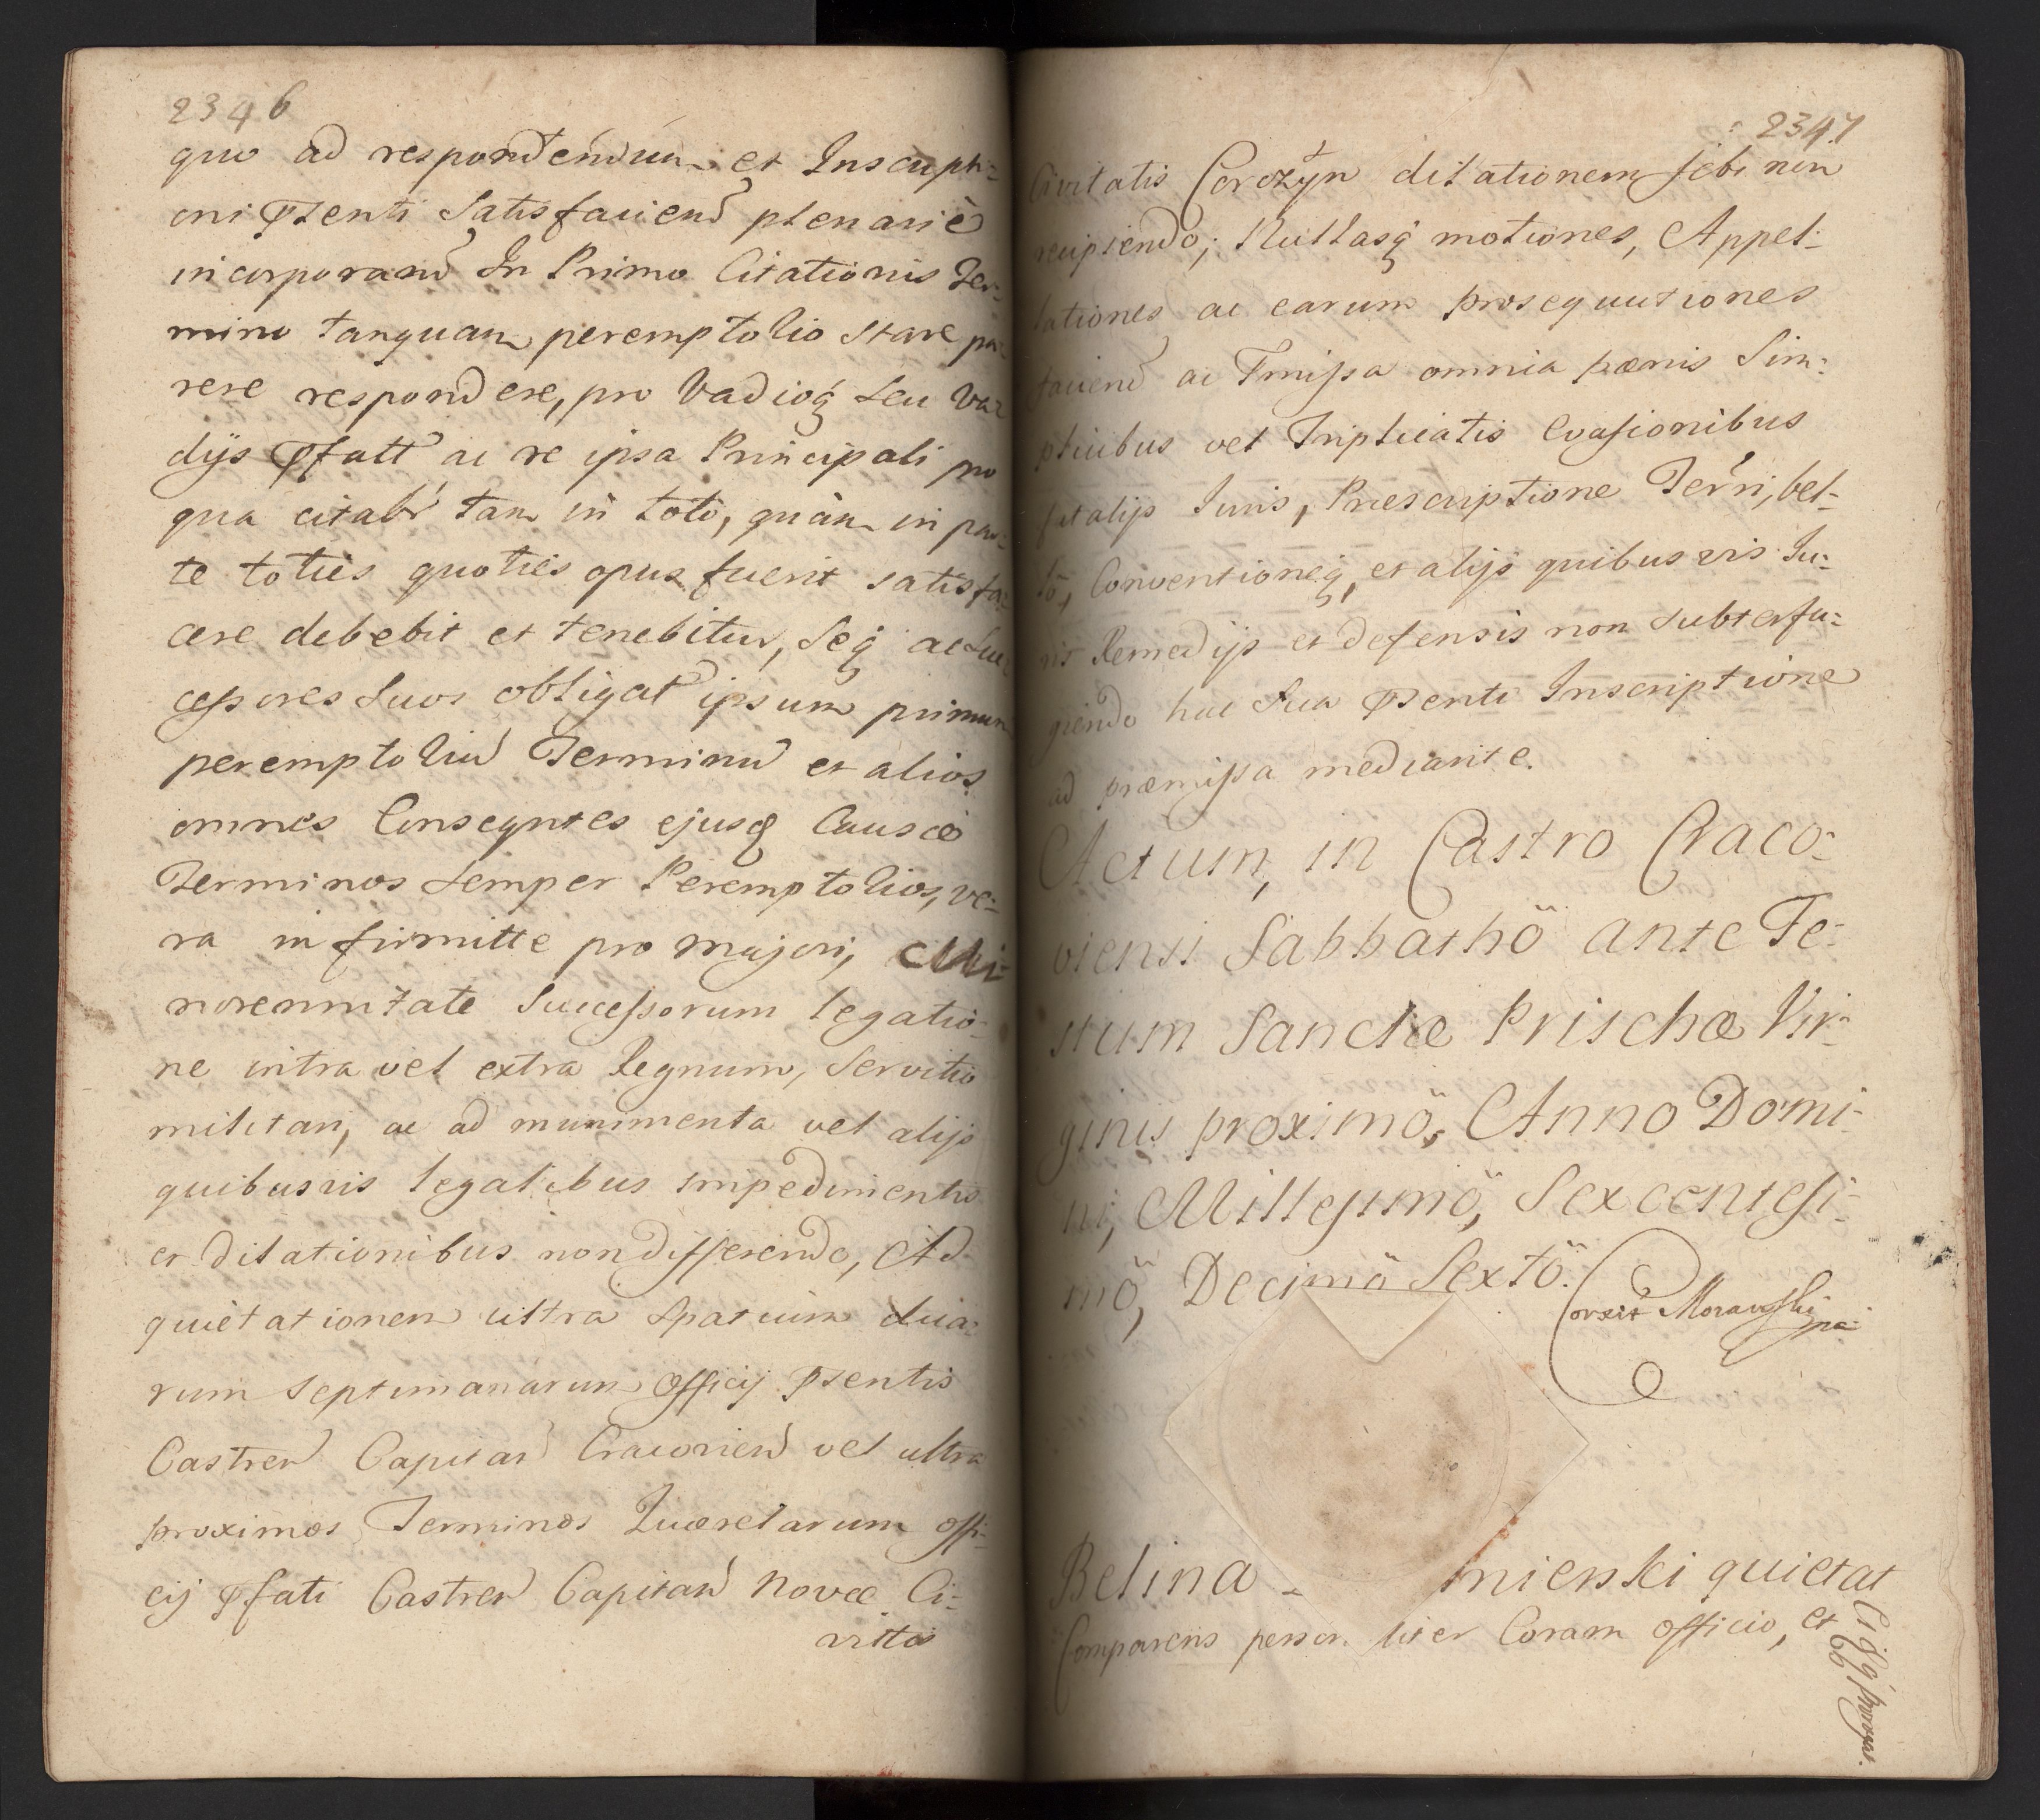 2346
quo ad respondendum et Inscripti-
oni Psenti Satisfaciend plenariè
incorporand In Primo Citationis Ter-
mino tanquam peremptorio stare pa-
rere respondere, pro Vadioq seu Va-
dijs Pfatt ac re ipsa Principali pro
qua citabr tam in toto, quàm in par-
te toties quoties opus fuerit satisfa-
cere debebit et tenebitur, Seq ac Suc-
cessores Suos obligat ipsum primum
peremptoriu Terminu et alios
omnes Conseqntes ejusq Causæ
Terminos semper Peremptorios, ve-
ra infirmitte pro majori, Mi-
norennitate Successorum legatio-
ne intra vel extra Regnum, Servitio
militari, ac ad munimenta vel alijs
quibusvis legalibus impedimentis
et dilationibus non differendo, Ad
quietationem ultra spatium dua-
rum septimanarum Officij Psentis
Castren Capitan Cracovien vel ultra
proximos Terminos Querelarum offi-
cij Pfati Castren Capitan Novæ Ci-
vittis
2347
Civitatis Corczyn dilationem sibi non
recipiendo; Nullasq motiones, Appel-
lationes ac earum prosequutiones
faciend ac Pmissa omnia pænis Sim-
plicibus vel Triplicatis Evasionibus
fatalijs Iuris, Præscriptione Terri, bel-
lö, Conventioneq, et alijs quibusvis Iu-
ris Remedijs et defensis non subterfu-
giendo hac Sua Psenti Inscriptione
ad præmissa mediante.
Actum, in Castro Craco-
viensi Sabbathö ante Fe-
stum Sanctæ Prischæ Vir-
ginis proximö, Anno Domi-
ni, Millesimö, Sexcentesi-
mö, Decimö Sextö.
Corxit Morawski
Belina - mienski quietat
Comparens person liter Coram Officio, et